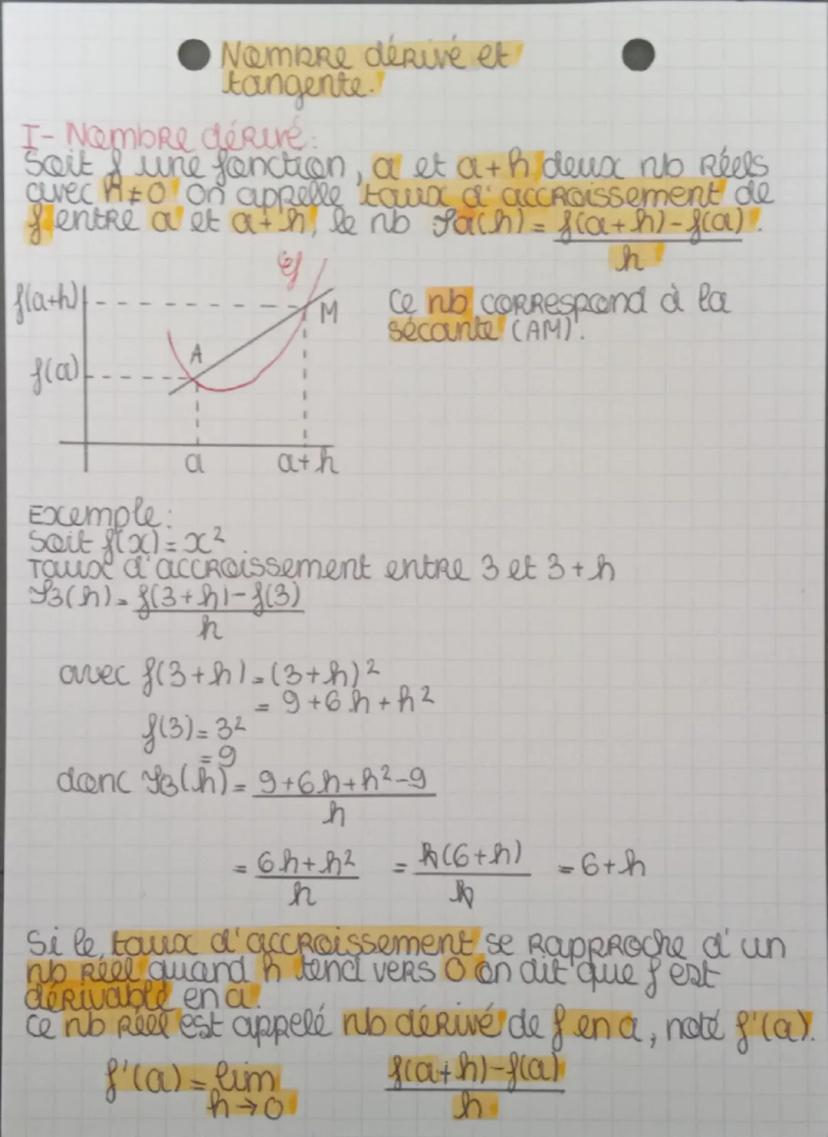 Nombre dérivé et
tangente.
I- Nombre dérivé:
Soit f une fonction, a et a+h deux nb réels
avec h≠0. On appelle taux d'accroissement de
f entre a et a+h, le nb τa(h) = f(a+h)-f(a)/h.
Cf
f(a+h)
M
Ce nb correspond à la
sécante (AM).
A
f(a)
a a+h
Exemple:
Soit f(x)=x².
Taux d'accroissement entre 3 et 3+h
τ3(h)= f(3+h)-f(3)/h
avec f(3+h)=(3+h)²
= 9+6h+h²
f(3)=3²
=9
donc τ3(h)= 9+6h+h²-9/h
= 6h+h²/h = h(6+h)/h = 6+h
Si le taux d'accroissement se rapproche d'un
nb réel quand h tend vers 0 on dit que f est
dérivable en a.
Ce nb réel est appelé nb dérivé de f en a, noté f'(a).
f'(a) = lim h→0 f(a+h)-f(a)/h